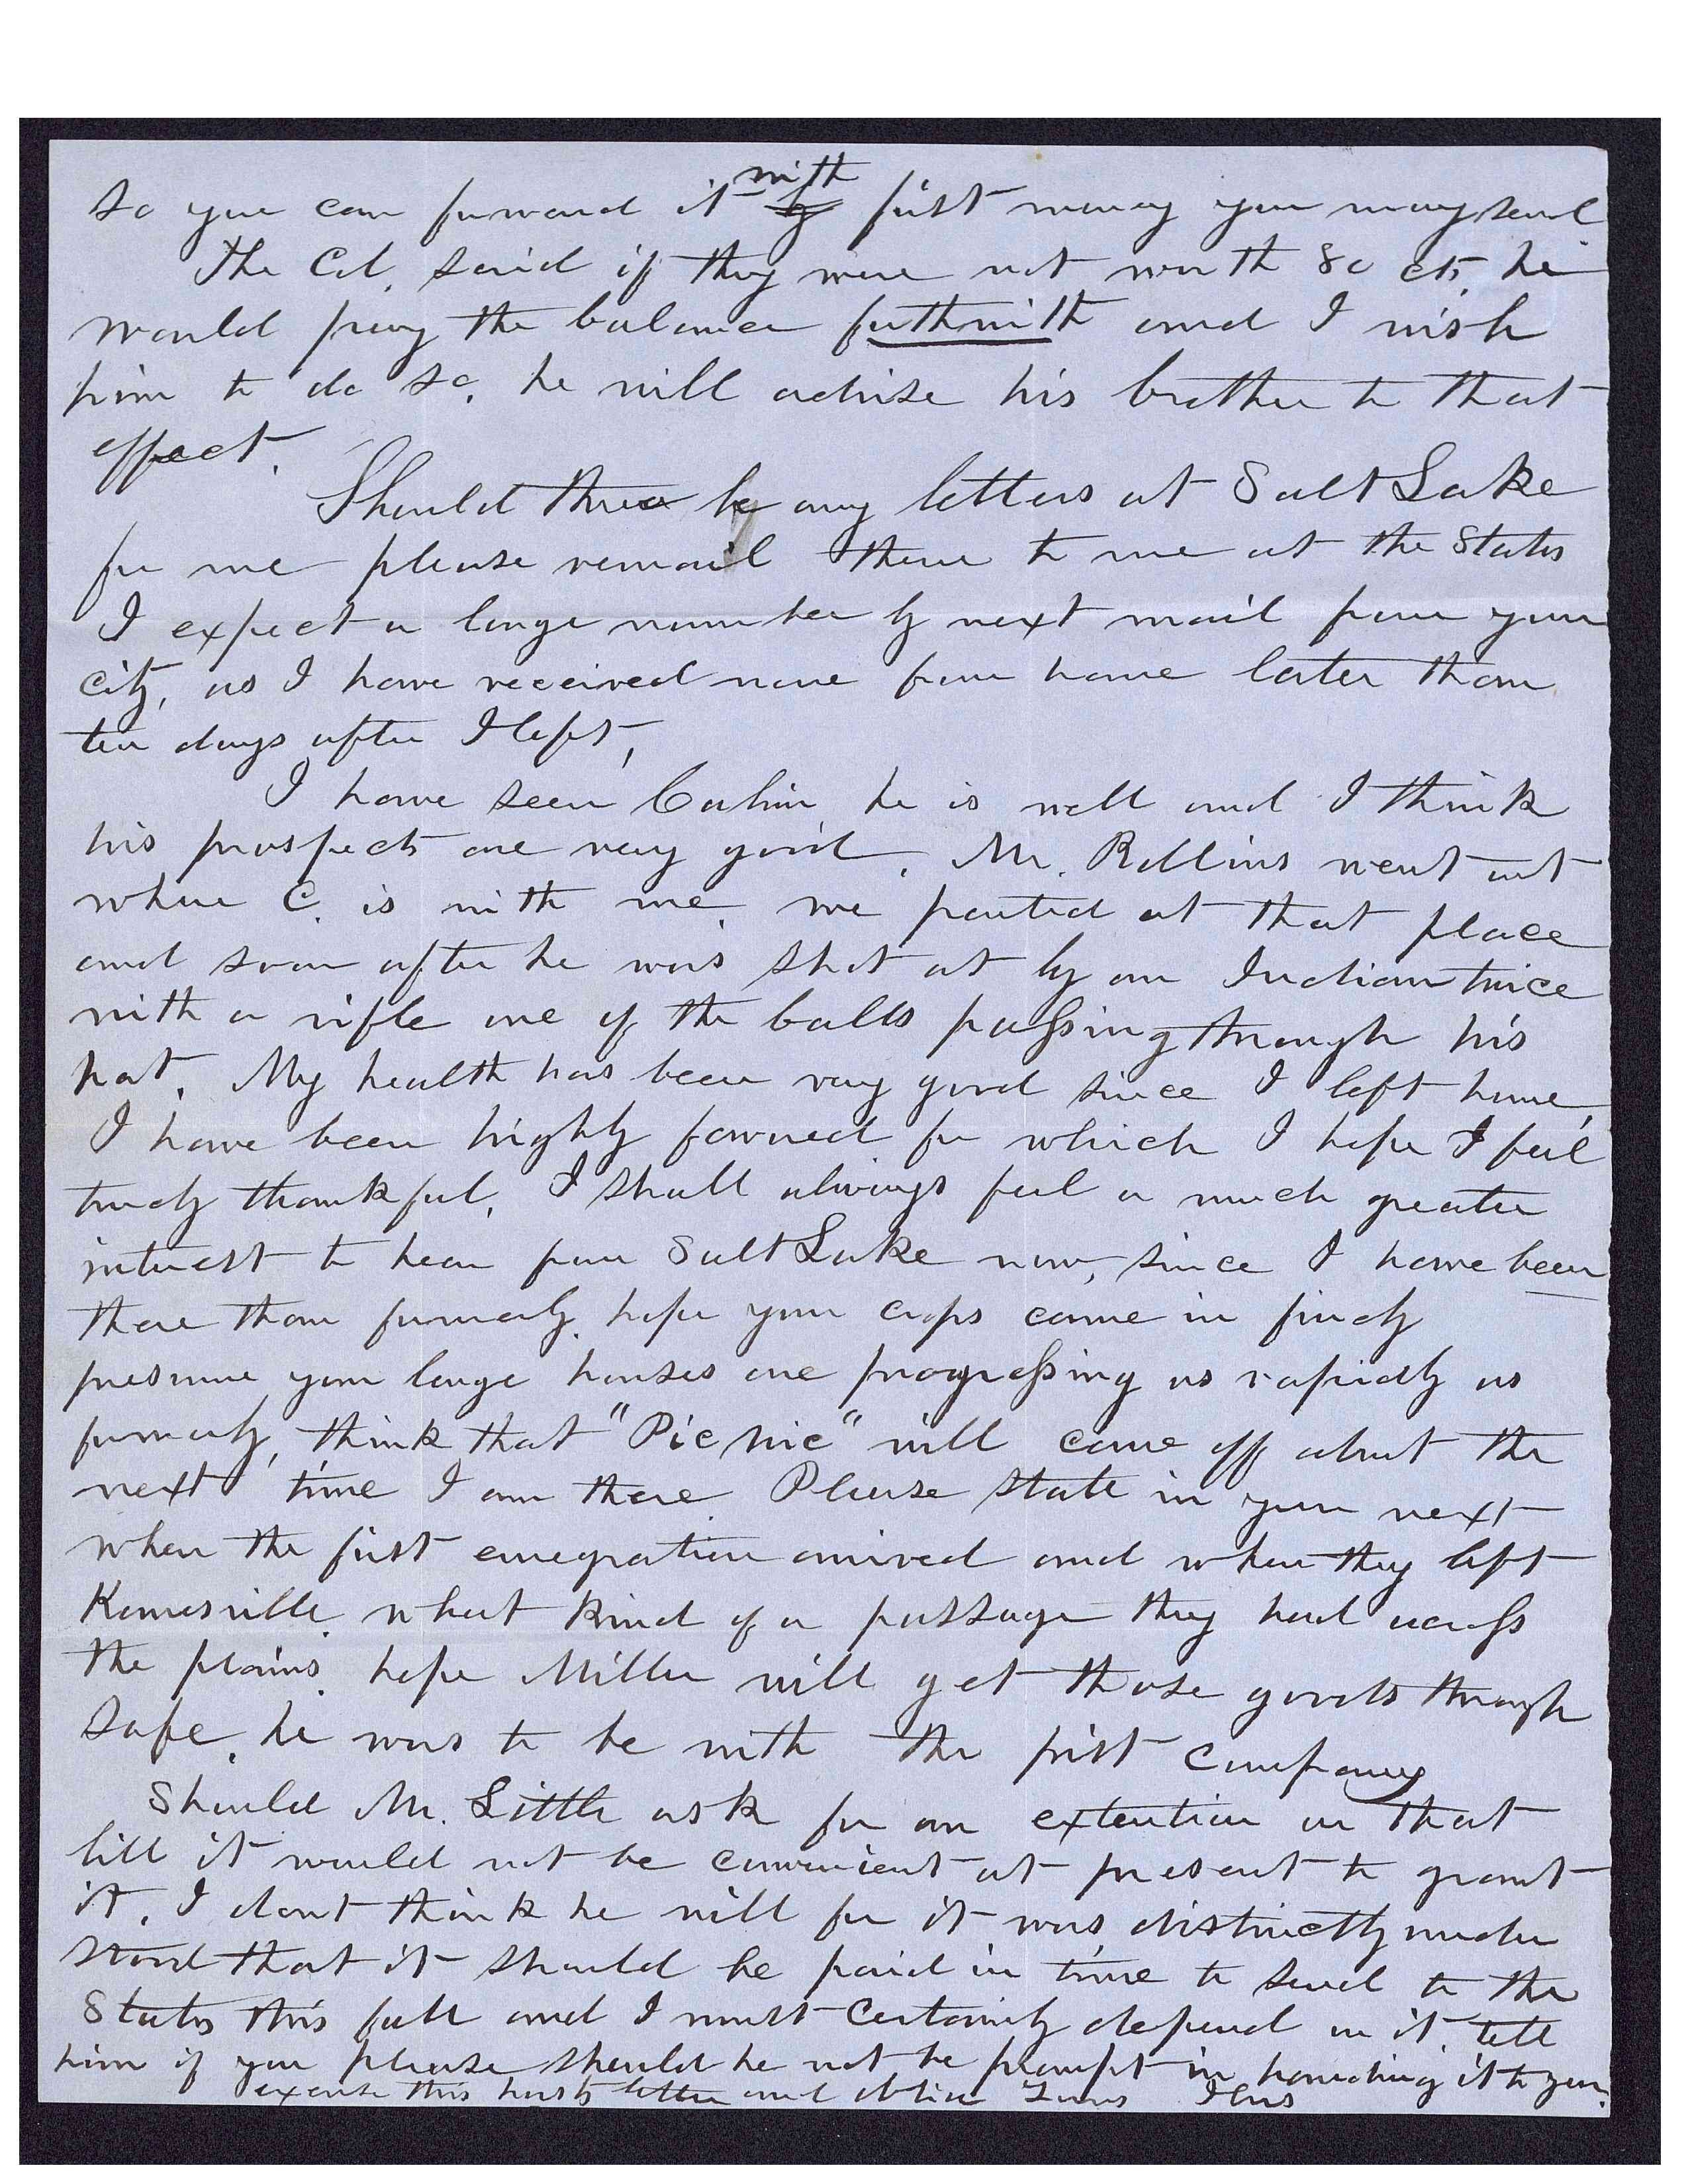 so you can forward it with by first money you may send
The Col. said if they were not worth 80 cts, he
would pay the balance forthwith and I wish
him to do so, he will advise his brother to that
effect.
Should there be any letters at Salt Lake
for me please remail them to me at the States
I expect a large number by next mail from your
city, as I have received none from home later than
ten days after I left,
I have seen Calvin he is well and I think
his prospects are very good. Mr. Rollins went out
where C. is with me, we parted at that place
and soon after he was shot at by an Indian twice
with a rifle one of the balls passing through his
hat. My health has been very good since I left home,
I have been highly favored for which I hope I feel
truly thankful, I shall always feel a much greater
interest to hear from Salt Lake now, since I have been
there than formerly. hope your crops came in finely
presume your large houses are progressing as rapidly as
formerly, think that "Pic nic" will come off about the
next time I am there. Please state in your next
when the first emegration arrived and when they left
Kanesville, what kind of a passage they had across
the plains. hope Miller will get those goods through
safe, he was to be with the first company
Should Mr. Little ask for an extention on that
bill it would not be convenient at present to grant
it, I dont think he will for it was distinctly under
stood that it should be paid in time to send to the
States this fall and I must certainly depend on it, tell
him if you please should he not be prompt in handing it to you.
excuse this hasty letter and oblige Yours